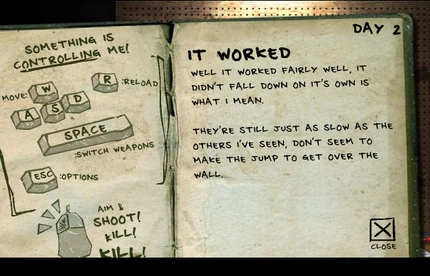 SOMETHING IS
CONTROLLING ME!
MOVE:
W
A
S
D
R
:RELOAD
SPACE
:SWITCH WEAPONS
ESC
:OPTIONS
AIM &
SHOOT!
KILL!
KILL!
DAY 2
IT WORKED
WELL IT WORKED FAIRLY WELL, IT
DIDN'T FALL DOWN ON IT'S OWN IS
WHAT I MEAN.
THEY'RE STILL JUST AS SLOW AS THE
OTHERS I'VE SEEN, DON'T SEEM TO
MAKE THE JUMP TO GET OVER THE
WALL.
CLOSE